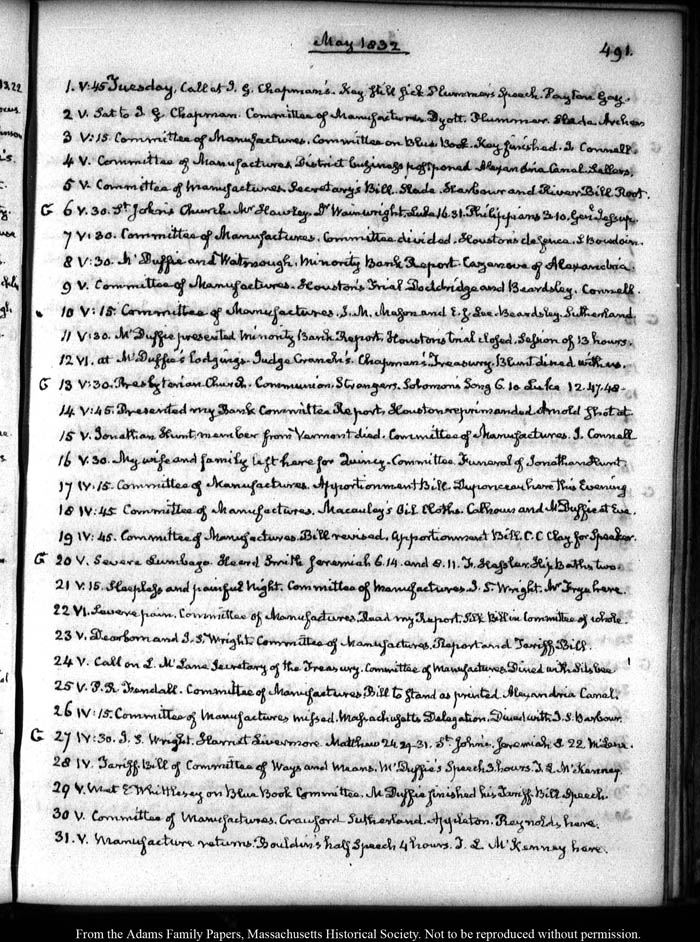 May 1832
491.
1. V:45 Tuesday, Call at J. G. Chapman's. Kay still sick Plummer's Speech. Payton Gay.
2 V. Sat to J G Chapman. Committee of Manufactures. Dyott. Plummer. Slade. Archer
3 V:15. Committee of Manufactures. Committee on Blue Book. Kay finished. J. Connell.
4 V. Committee of Manufactures District business postponed Alexandria Canal. Sellers.
5 V. Committee of Manufactures. Secretary's Bill. Slade. Harbour and River Bill. Root.
G 6 V.30. St John's Church. Mr Hawley. Dr Wainwright. Luke 16.31. Philippians 3.10. Genl Jessup.
7 V:30. Committee of Manufactures. Committee divided. Houston's defence. J Bowdoin.
8 V:30. McDuffie and Watmough. Minority Bank Report. Cazenove of Alexandria.
9 V. Committee of Manufactures. Houston's Trial Doddridge and Beardsley. Connell.
10 V:15. Committee of Manufactures. J. M. Mason and E. J. Lee. Beardsley. Sutherland
11 V:30. McDuffie presented Minority Bank Report. Houston's trial closed. Session of 13 hours.
12 VI. at McDuffie's lodgings. Judge Cranch's. Chapman's. Treasury. Blunt dined with us.
G 13 V:30. Presbyterian Church. Communion. Strangers. Solomons Song 6.10 Luke 12.47.48.
14 V:45. Presented my Bank Committee Report. Houston reprimanded Arnold shot at.
15 V. Jonathan Hunt, member from Vermont died. Committee of Manufactures. J. Connell
16 V.30. My wife and family left here for Quincy. Committee. Funeral of Jonathan Hunt.
17 IV:15. Committee of Manufactures. Apportionment Bill. Duponceau here this Evening
18 IV:45 Committee of Manufactures. Macauley's Oil Cloths. Calhoun and McDuffie at Eve.
19 IV:45. Committee of Manufactures. Bill revised. Apportionment Bill. C. C Clay for Speaker.
G 20 V. Severe Lumbago. Heard Smith Jeremiah 6.14. and 8.11. F. Hassler. Hip Baths two
21 V.15. Sleepless and painful Night. Committee of Manufactures. J. S. Wright. Mr Frye here.
22 VI. Severe pain. Committee of Manufactures. Read my Report. Bill in Committee of whole.
23 V. Dearborn and J. S. Wright. Committee of Manufactures. Report and Tariff Bill.
24 V. Call on L. McLane Secretary of the Treasury. Committee of Manufactures. Dined with Silsbee
25 V. P. R. Fendall. Committee of Manufactures Bill to stand as printed. Alexandria Canal.
26 IV:15. Committee of Manufactures missed. Massachusetts Delegation. Dined with J. S. Barbour.
G 27 IV:30. J. S. Wright. Harriet Livermore. Matthew 24.29-31. St John's. Jeremiah 5 22
28 IV. Tariff Bill of Committee of Ways and Means. McDuffie's Speech 3 hours. T. L. McKenney
29 V. Met E Whittlesey on Blue Book Committee. McDuffie finished his Tariff Bill Speech.
30 V. Committee of Manufactures. Crawford Sutherland. Appleton. Reynolds here.
31. V. Manufacture returns. Bouldin's half Speech 4 hours. T. L McKenney here.
From the Adams Family Papers, Massachusetts Historical Society. Not to be reproduced without permission.